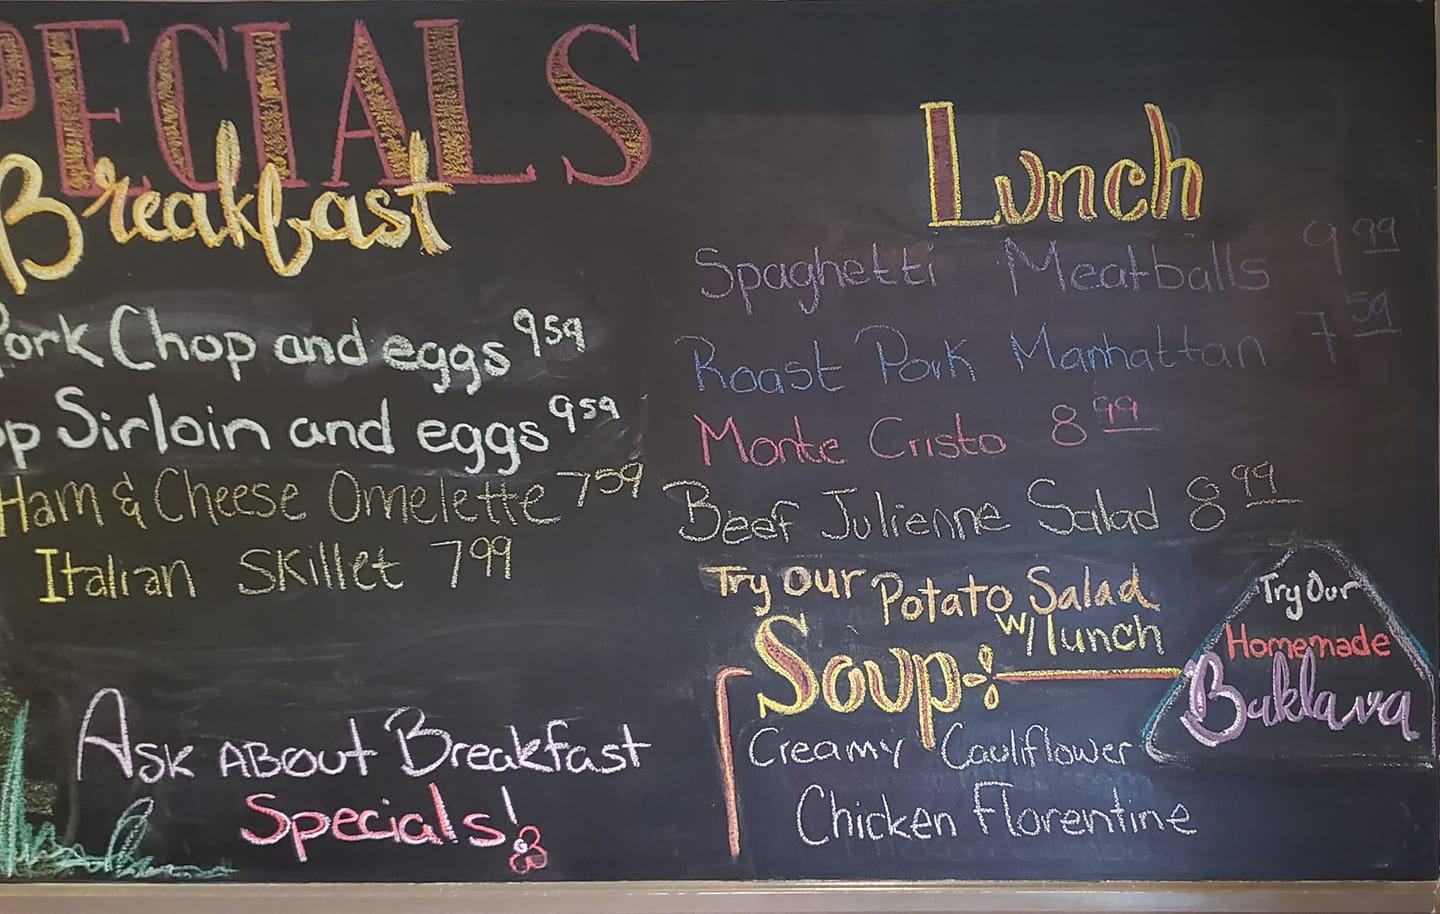 PECIALS
Breakfast
Pork Chop and eggs 9 59
op Sirloin and eggs 9 59
Ham & Cheese Omelette 7 59
Italian Skillet 7 99
Ask About Breakfast
Specials!
Lunch
Spaghetti Meatballs 9 99
Roast Pork Manhattan 7 59
Monte Cristo 8 99
Beef Julienne Salad 8 99
Try our Potato Salad
w/ lunch
Soup
Creamy Cauliflower
Chicken Florentine
Try Our
Homemade
Baklava